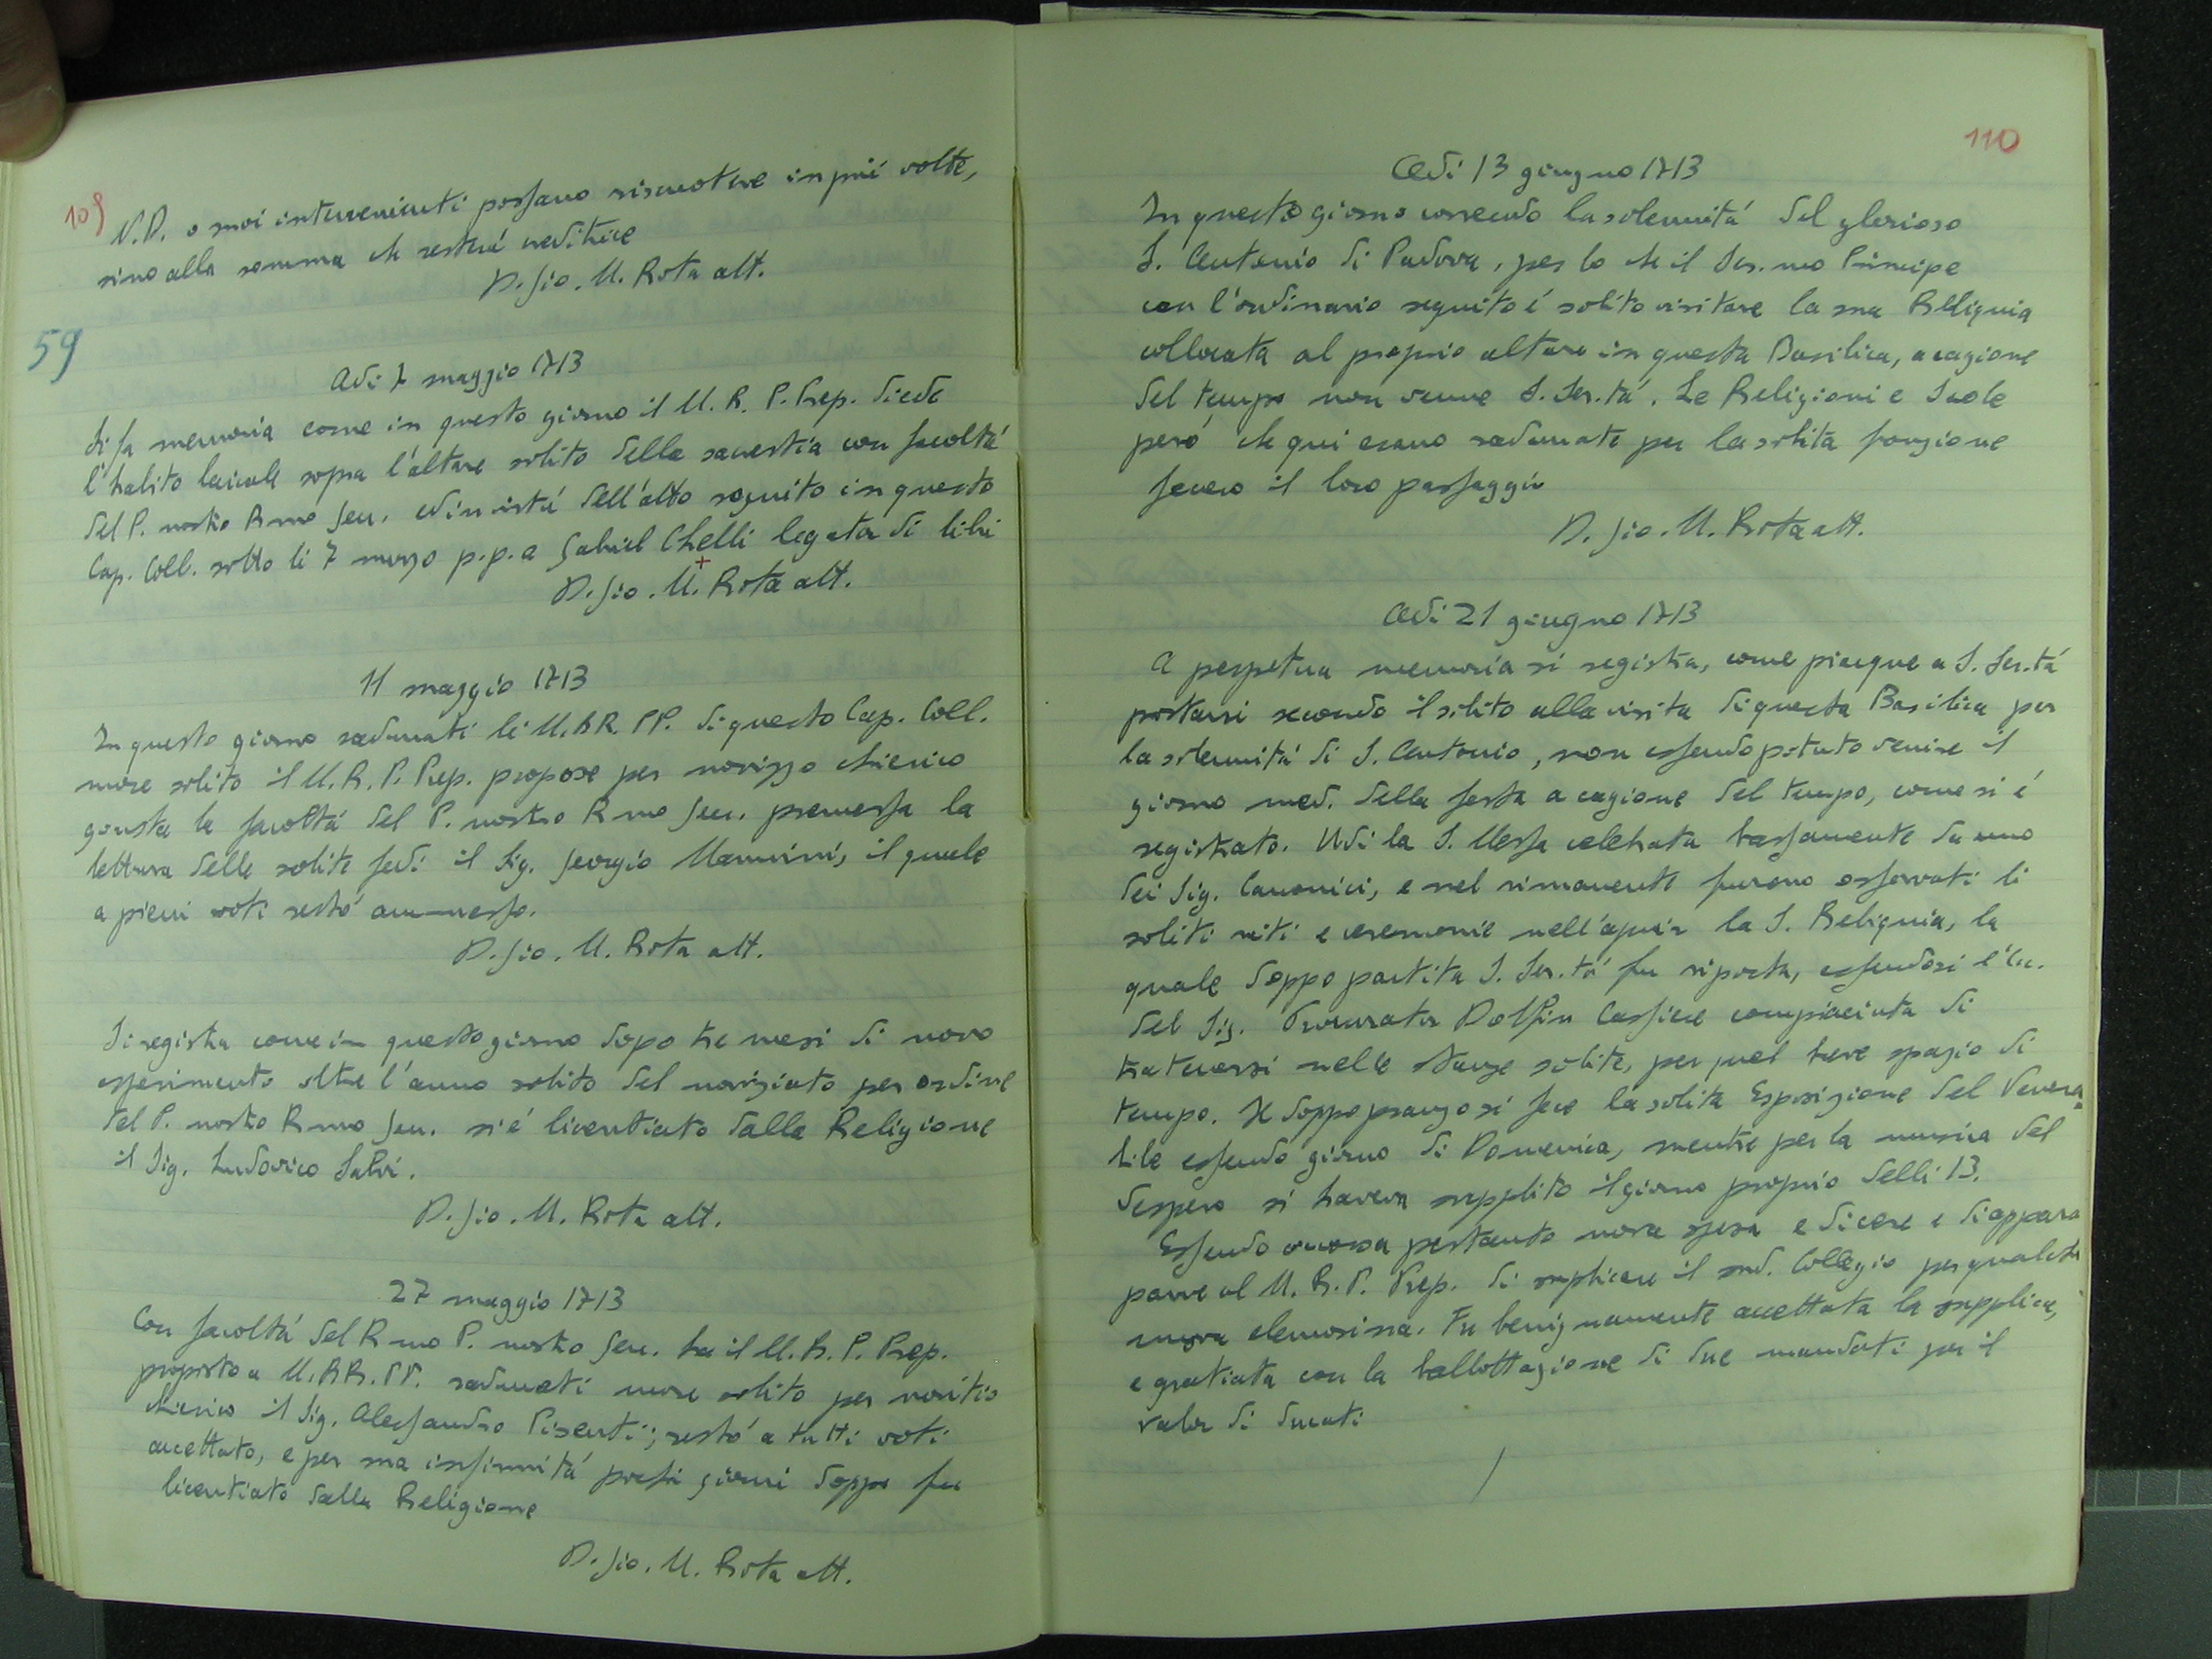 109
N.D. o suoi intervenienti possano riscuotere in più volte,
sino alla somma che resterà creditrice
D. Gio. M. Rota att.
59
Adi 7 maggio 1713
Si fa memoria come in questo giorno il M. R. P. Prep. diede
l'habito laicale sopra l'altare solito della sacrestia con facoltá
del P. nostro Rmo Gen. ed in virtú dell'atto seguito in questo
Cap. Coll. sotto li 7 marzo p.p. a Gabriel Chelli legator di libri
D. Gio. M. Rota att.
11 maggio 1713
In questo giorno radunati li M. RR. PP. di questo Cap. Coll.
more solito il M. R. P. Prep. propose per novizzo chierico
giusta la facoltá del P. nostro Rmo Gen. premessa la
lettura delle solite fedi il Sig. Georgio Mannini, il quale
a pieni voti restó ammesso.
D. Gio. M. Rota att.
Si registra come in questo giorno dopo tre mesi di novo
esperimento oltre l'anno solito del noviziato per ordine
del P. nostro Rmo Gen. si é licentiato dalla Religione
il Sig. Ludovico Salvi.
D. Gio. M. Rota att.
27 maggio 1713
Con facoltá del Rmo P. nostro Gen. ha il M. R. P. Prep.
proposto a M. RR. PP. radunati more solito per novitio
chierico il Sig. Alessandro Pisenti; restó a tutti voti
accettato, e per sua infirmitá pochi giorni doppo fu
licentiato dalla Religione
D. Gio. M. Rota att.
110
Adi 13 giugno 1713
In questo giorno correndo la solennitá del glorioso
S. Antonio di Padova, per lo che il Ser.mo Principe
con l'ordinario seguito é solito visitare la sua Reliquia
collocata al proprio altare in questa Basilica, a cagione
del tempo non venne S. Ser.tá. Le Religioni e Scole
peró che qui erano radunate per la solita fonzione
fecero il loro passaggio
D. Gio. M. Rota att.
Adi 21 giugno 1713
A perpetua memoria si registra, come piacque a S. Ser.tá
portarsi secondo il solito alla visita di questa Basilica per
la solennitá di S. Antonio, non essendo potuto venire il
giorno med. della festa a cagione del tempo, come si é
registrato. Udi la S. Messa celebrata bassamente da uno
dei Sig. Canonici, e nel rimanente furono osservati li
soliti riti e ceremonie nell'aprir la S. Reliquia, la
quale doppo partita S. Ser.tá fu riposta, essendosi l'Ecc.
del Sig. Procurator Dolfin Cassiere compiaciuta di
trattenersi nelle stanze solite, per quel breve spazio di
tempo. Il doppo pranzo si fece la solita Esposizione del Venera
bile essendo giorno di Domenica, mentre per la musica del
Vespero si haveva supplito il giorno proprio delli 13.
Essendo occorsa pertanto nova spesa e di cere e di appara
parve al M. R. P. Prep. di suplicare il sud. Collegio per qualche
nuova elemosina. Fu benignamente accettata la supplica,
e gratiata con la ballottazione di due mandati per il
valor di ducati
/